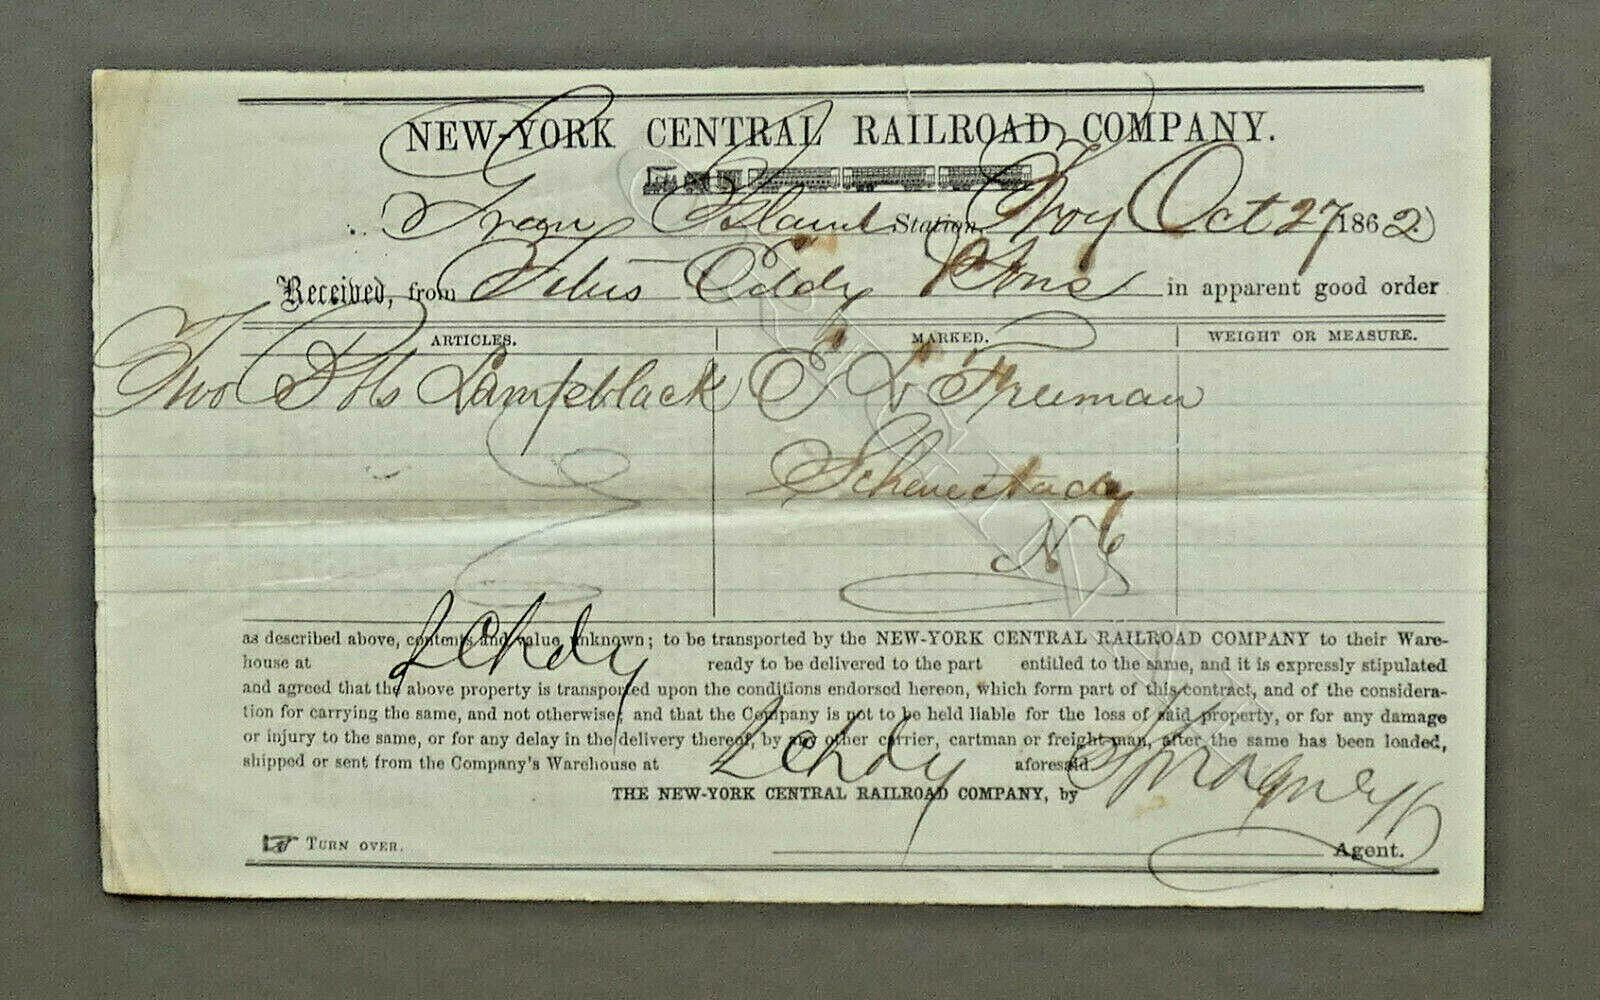 NEW-YORK CENTRAL RAILROAD COMPANY.
Green Island Station, Troy Oct 27 1862
Received, from Titus Eddy & Sons in apparent good order
ARTICLES. MARKED. WEIGHT OR MEASURE.
Two Bbls Lampblack C Freeman
Schenectady
N Y
as described above, contents and value unknown; to be transported by the NEW-YORK CENTRAL RAILROAD COMPANY to their Ware-
house at Schdy ready to be delivered to the part entitled to the same, and it is expressly stipulated
and agreed that the above property is transported upon the conditions endorsed hereon, which form part of this contract, and of the considera-
tion for carrying the same, and not otherwise; and that the Company is not to be held liable for the loss of said property, or for any damage
or injury to the same, or for any delay in the delivery thereof, by any other carrier, cartman or freight-man, after the same has been loaded,
shipped or sent from the Company's Warehouse at Schdy aforesaid.
THE NEW-YORK CENTRAL RAILROAD COMPANY, by
TURN OVER. Agent.